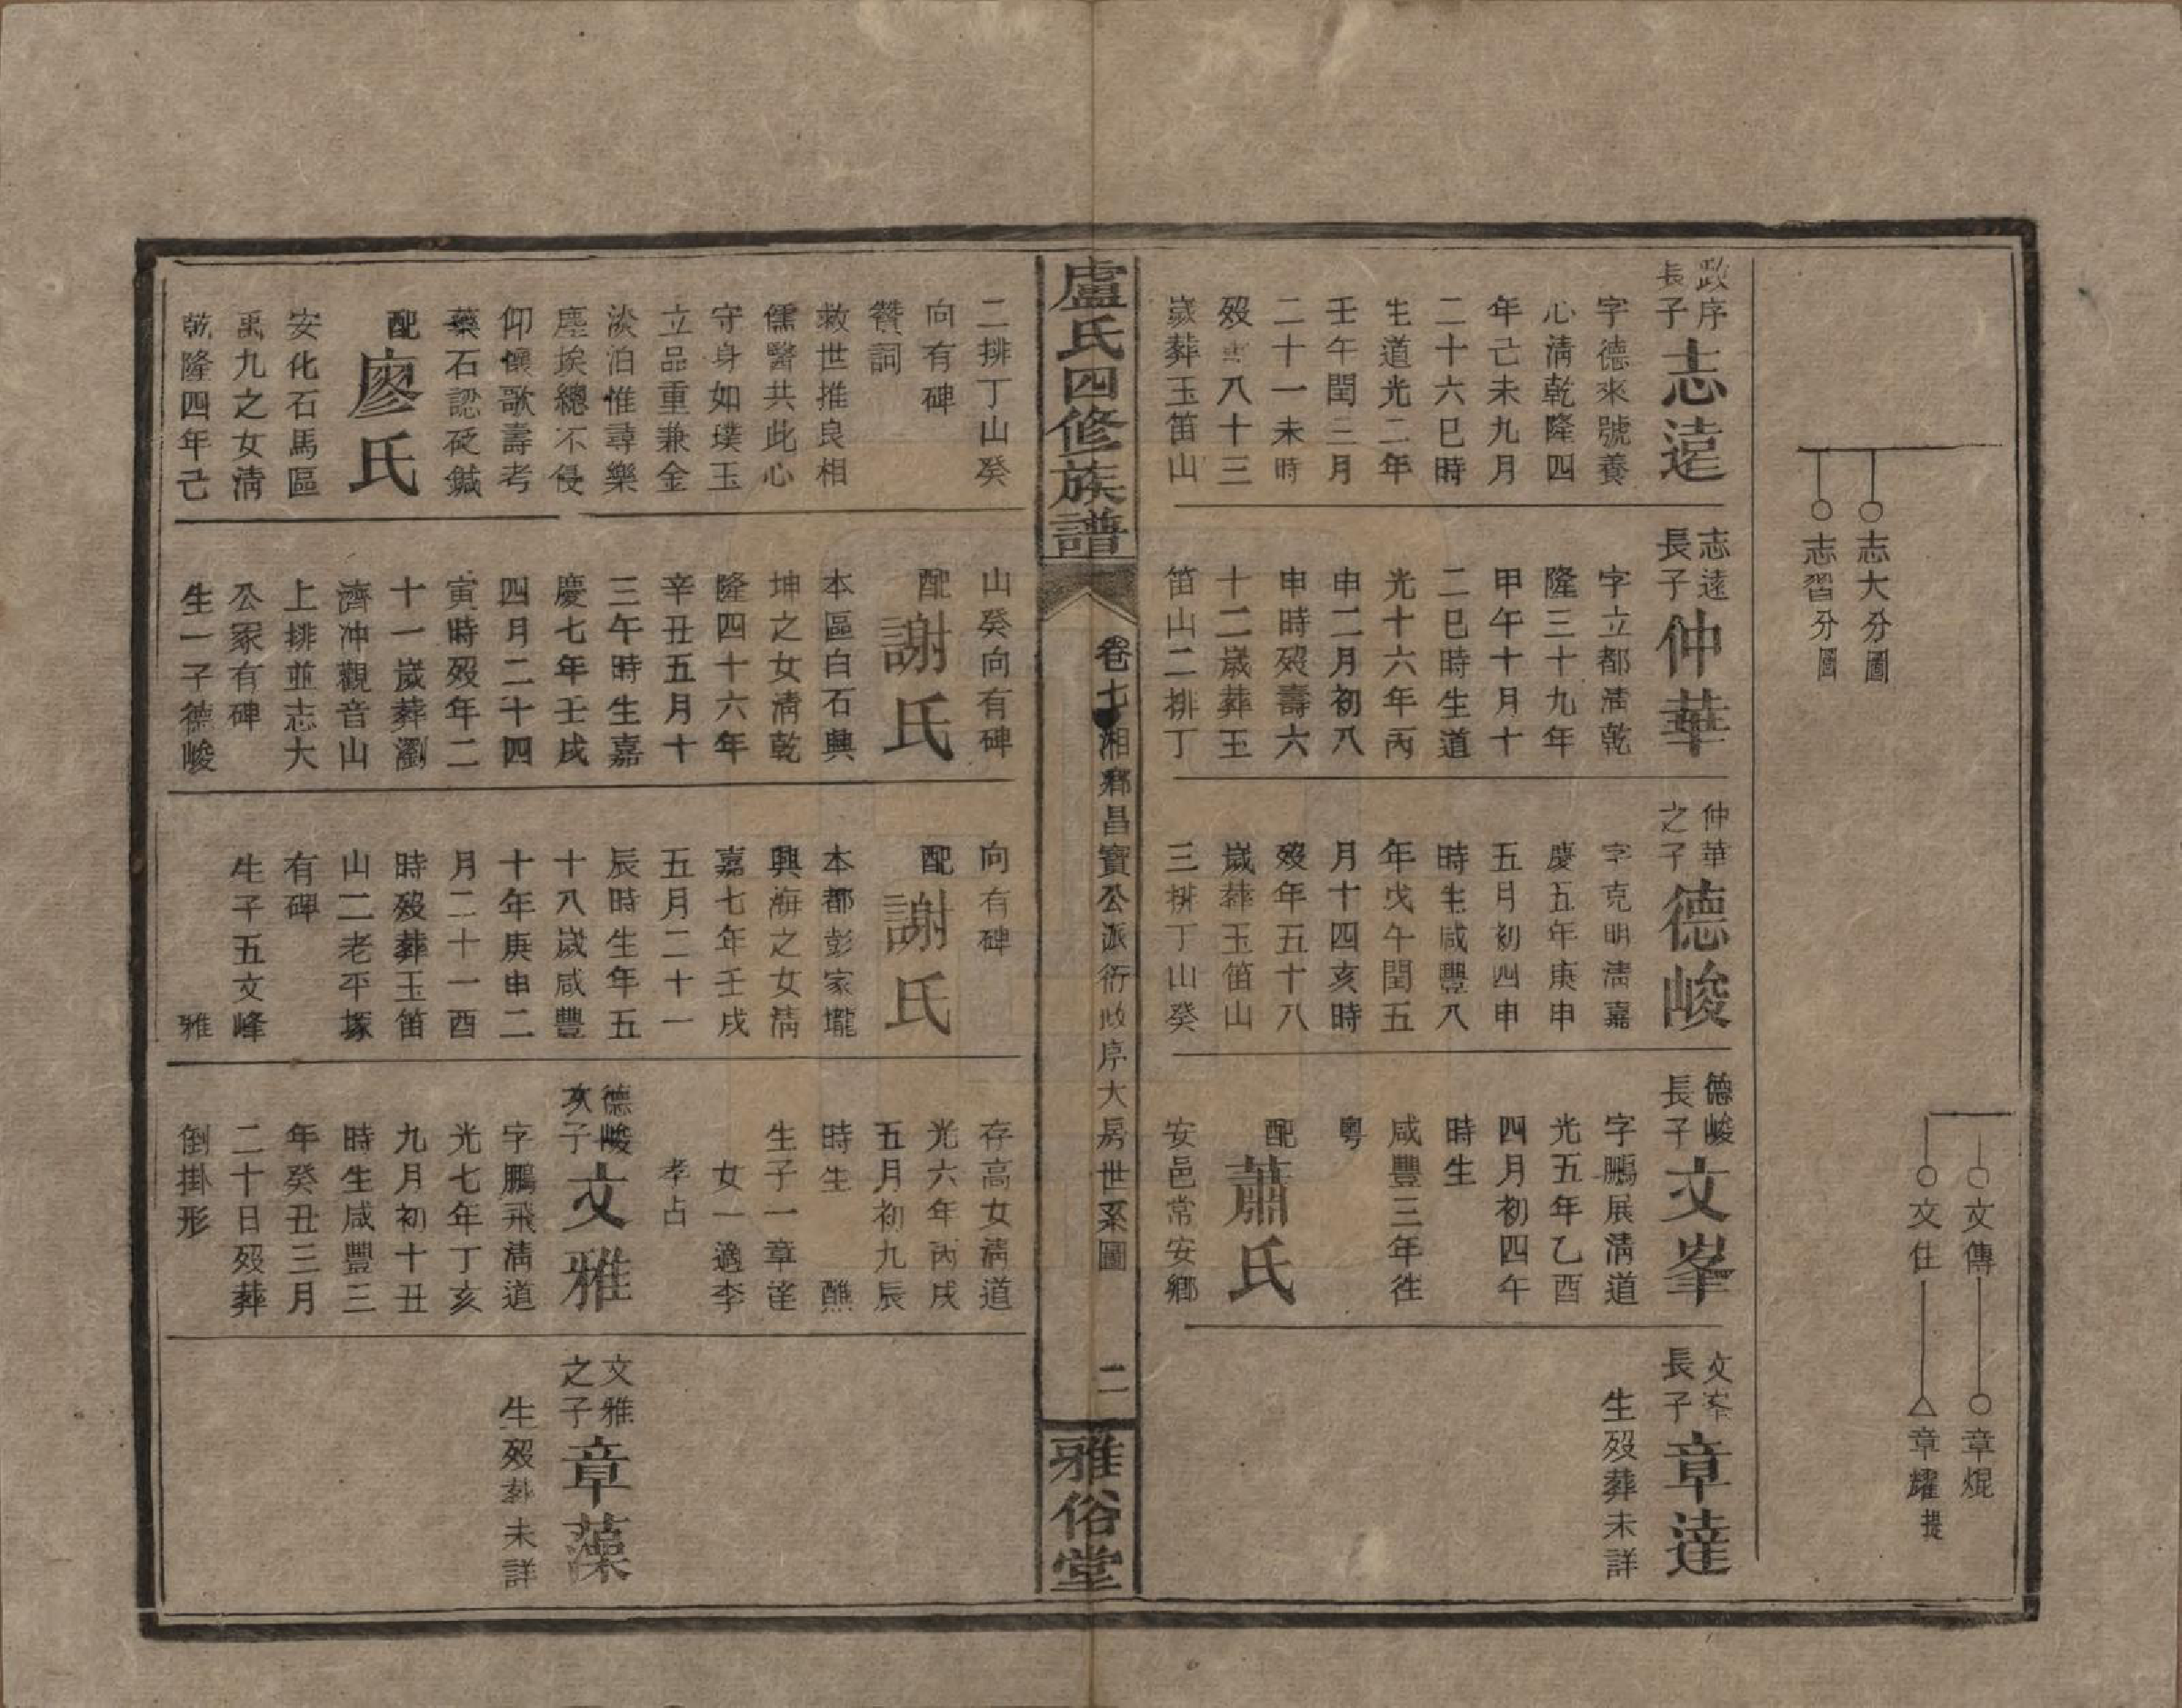 志大分圖
志習分圖
文傳
章焜
文仕
章耀
提
政序
長子
志遠
字德來號養
心清乾隆四
年己未九月
二十六巳時
生道光二年
壬午閏三月
二十一未時
歿 八十三
歲葬玉笛山
志遠
長子
仲華
字立都清乾
隆三十九年
甲午十月十
二巳時生道
光十六年丙
申二月初八
申時歿壽六
十二歲葬玉
笛山二排丁
仲華
之子
德峻
字克明清嘉
慶五年庚申
五月初四申
時生咸豐八
年戊午閏五
月十四亥時
歿年五十八
歲葬玉笛山
三排丁山癸
德峻
長子
文峯
字鵬展清道
光五年乙酉
四月初四年
時生
咸豐三年徃
粵
配
蕭氏
安邑常安鄉
文峯
長子
章達
生歿葬未詳
盧氏四修族譜
卷七
湘鄉昌寶公派衍政序大房世系圖
二
雅俗堂
二排丁山癸
向有碑
贊詞
救世推良相
儒醫共此心
守身如璞玉
立品重兼金
淡泊惟尋樂
塵埃總不侵
仰懷歌壽考
藥石認砭鍼
配
廖氏
安化石馬區
禹九之女清
乾隆四年己
山癸向有碑
配
謝氏
本區白石興
坤之女清乾
隆四十六年
辛丑五月十
三午時生嘉
慶七年壬戌
四月二十四
寅時歿年二
十一歲葬瀏
濟冲觀音山
上排並志大
公冢有碑
生一子德峻
向有碑
配
謝氏
本都彭家壠
興海之女清
嘉七年壬戌
五月二十一
辰時生年五
十八歲咸豐
十年庚申二
月二十一酉
時歿葬玉笛
山二老平塚
有碑
生子五文峰
雅
存高女清道
光六年丙戌
五月初九辰
時生 醮
生子一章達
女一適李
孝占
德峻
次子
文雅
字鵬飛清道
光七年丁亥
九月初十丑
時生咸豐三
年癸丑三月
二十日歿葬
倒掛形
文雅
之子
章藻
生歿葬未詳